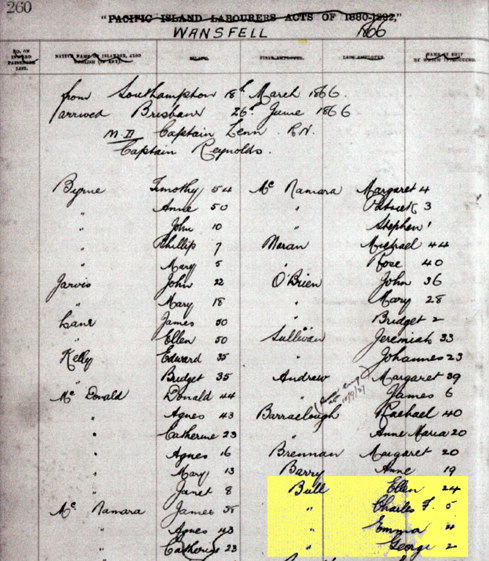 260
"PACIFIC ISLAND LABOURERS ACTS OF 1880-1892."
WANSFELL 1866
NATIVE NAME OF ISLANDER, ALSO
from Southampton 18th March 1866.
arrived Brisbane 26th June 1866
M.D Captain Lenn R.N.
Captain Reynolds.
Byrne Timothy 54 Mc Namara Margaret 4
" Anne 50 " Patrick 3
" John 10 " Stephen 1
" Phillip 7 Meran Michael 44
" Mary 5 " Rose 40
Jarvis John 22 O'Brien John 36
" Mary 18 " Mary 28
Lane James 50 " Bridget 2
" Ellen 50 Sullivan Jeremiah 33
Kelly Edward 35 " Johannes 23
" Bridget 35 Andrew Margaret 39
Mc Donald Donald 44 " James 6
" Agnes 43 Barraclough Rachael 40
" Catherine 23 " Anne Maria 20
" Agnes 16 Brennan Margaret 20
" Mary 13 Barry Anne 19
" Janet 8 Bull Ellen 24
Mc Namara James 35 " Charles F. 5
" Agnes 43 " Emma 4
" Catherine 23 " George 2